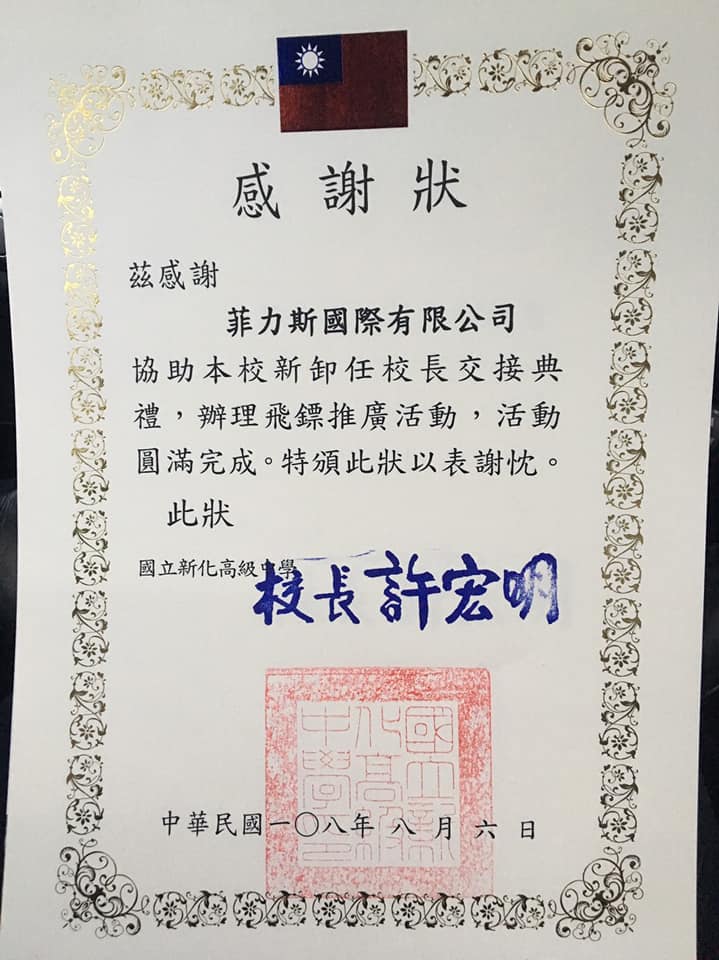 感謝狀
茲感謝
菲力斯國際有限公司
協助本校新卸任校長交接典
禮，辦理飛鏢推廣活動，活動
圓滿完成。特頒此狀以表謝忱。
此狀
國立新化高級中學
校長許宏明
國立新化高級中學
中華民國一〇八年八月六日